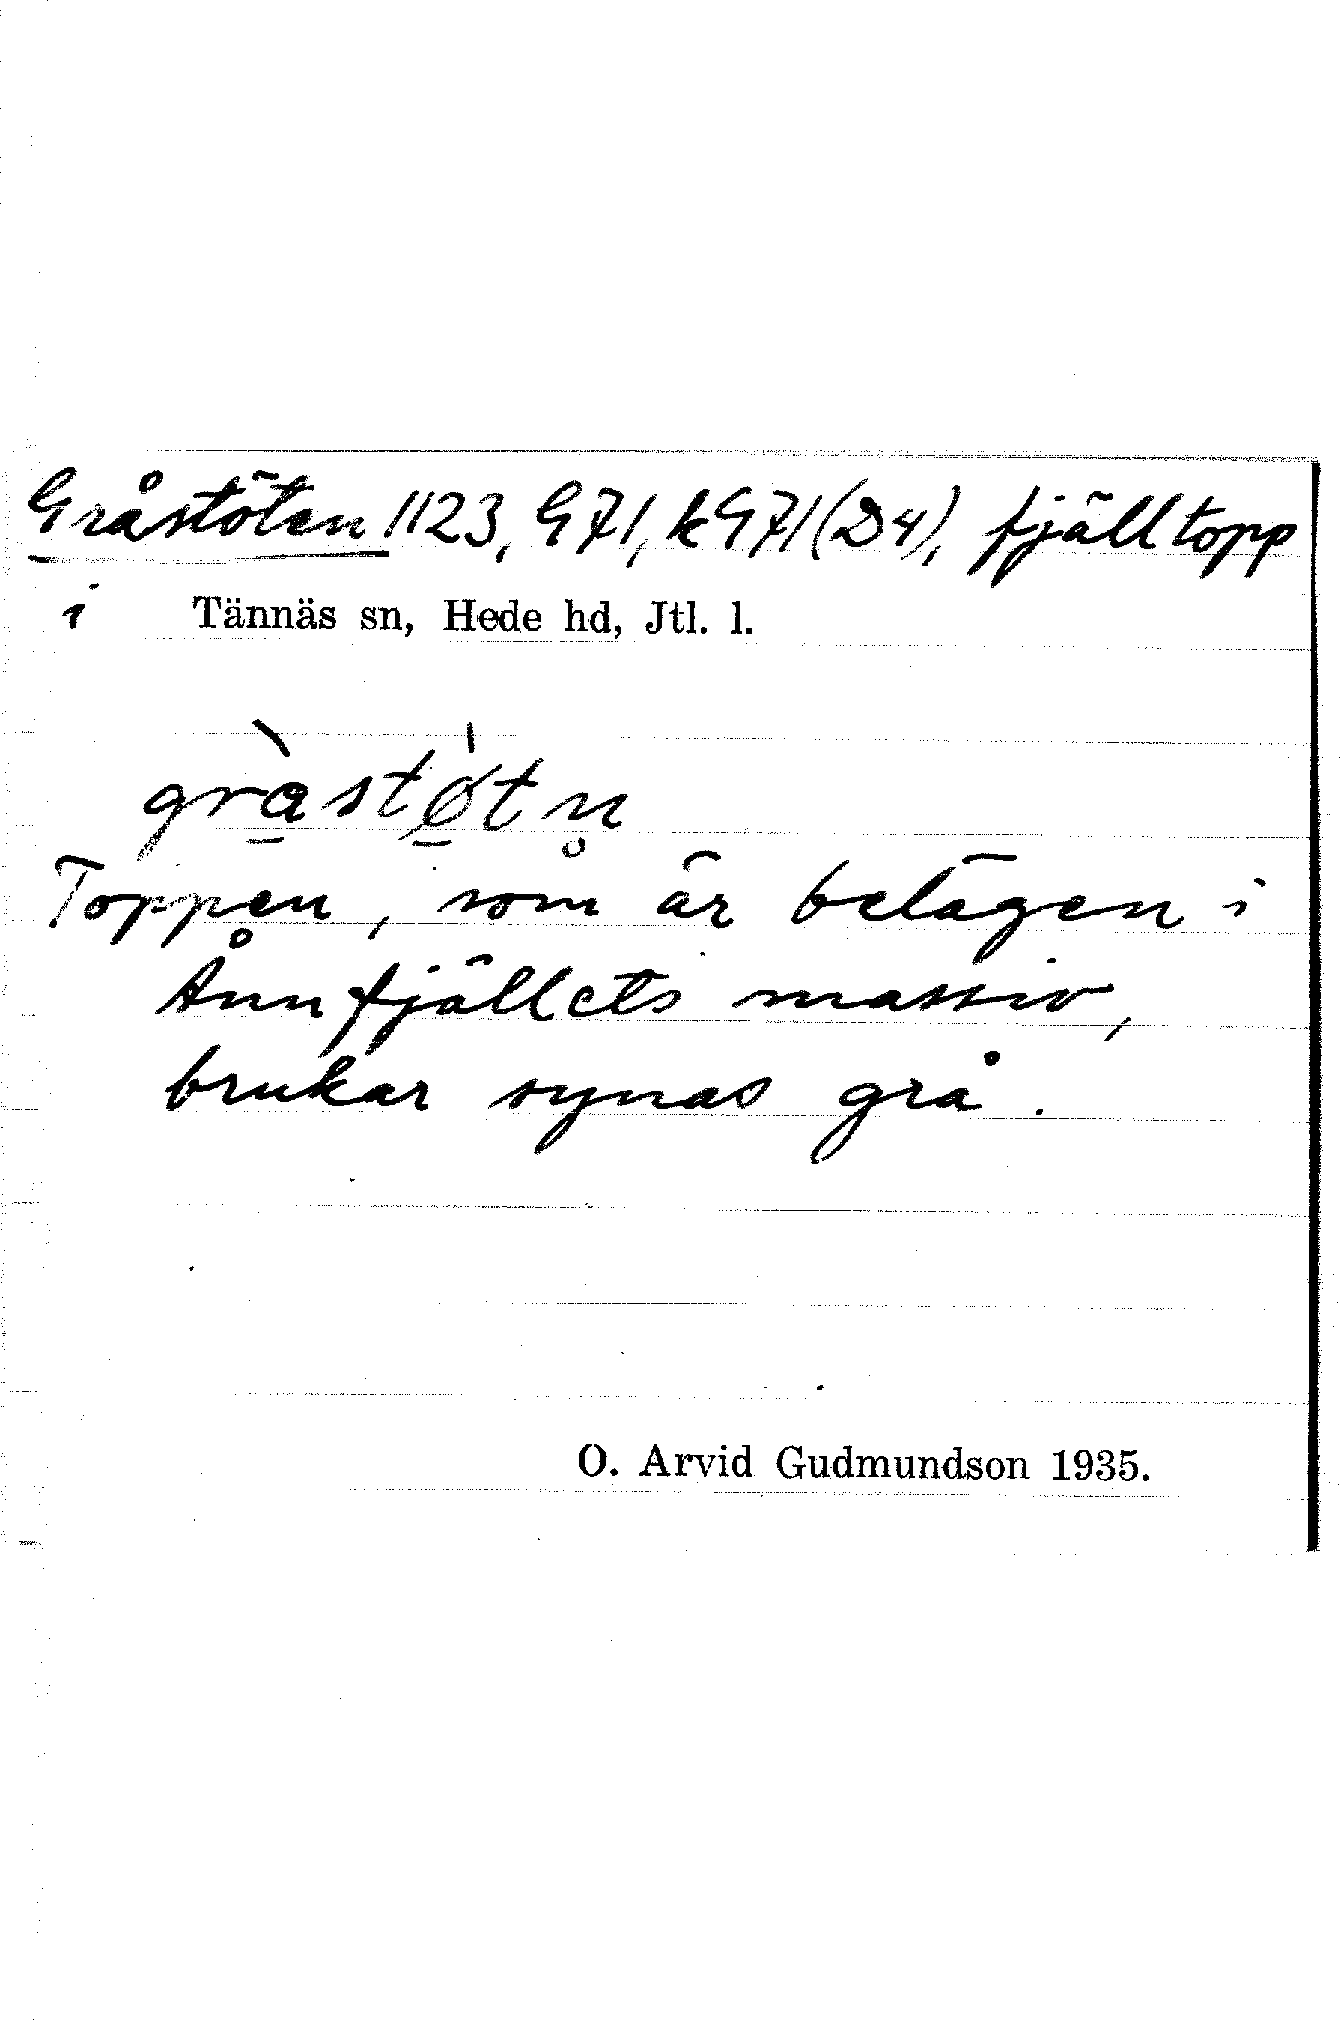 Gråstöten 1123, G71, kG71(D4), fjälltopp
i Tännäs sn, Hede hd, Jtl. l.
grɑ̀stø̀tn̥
Toppen, som är belägen i
Ånnfjällets massiv,
brukar synas grå.
O. Arvid Gudmundson 1935.